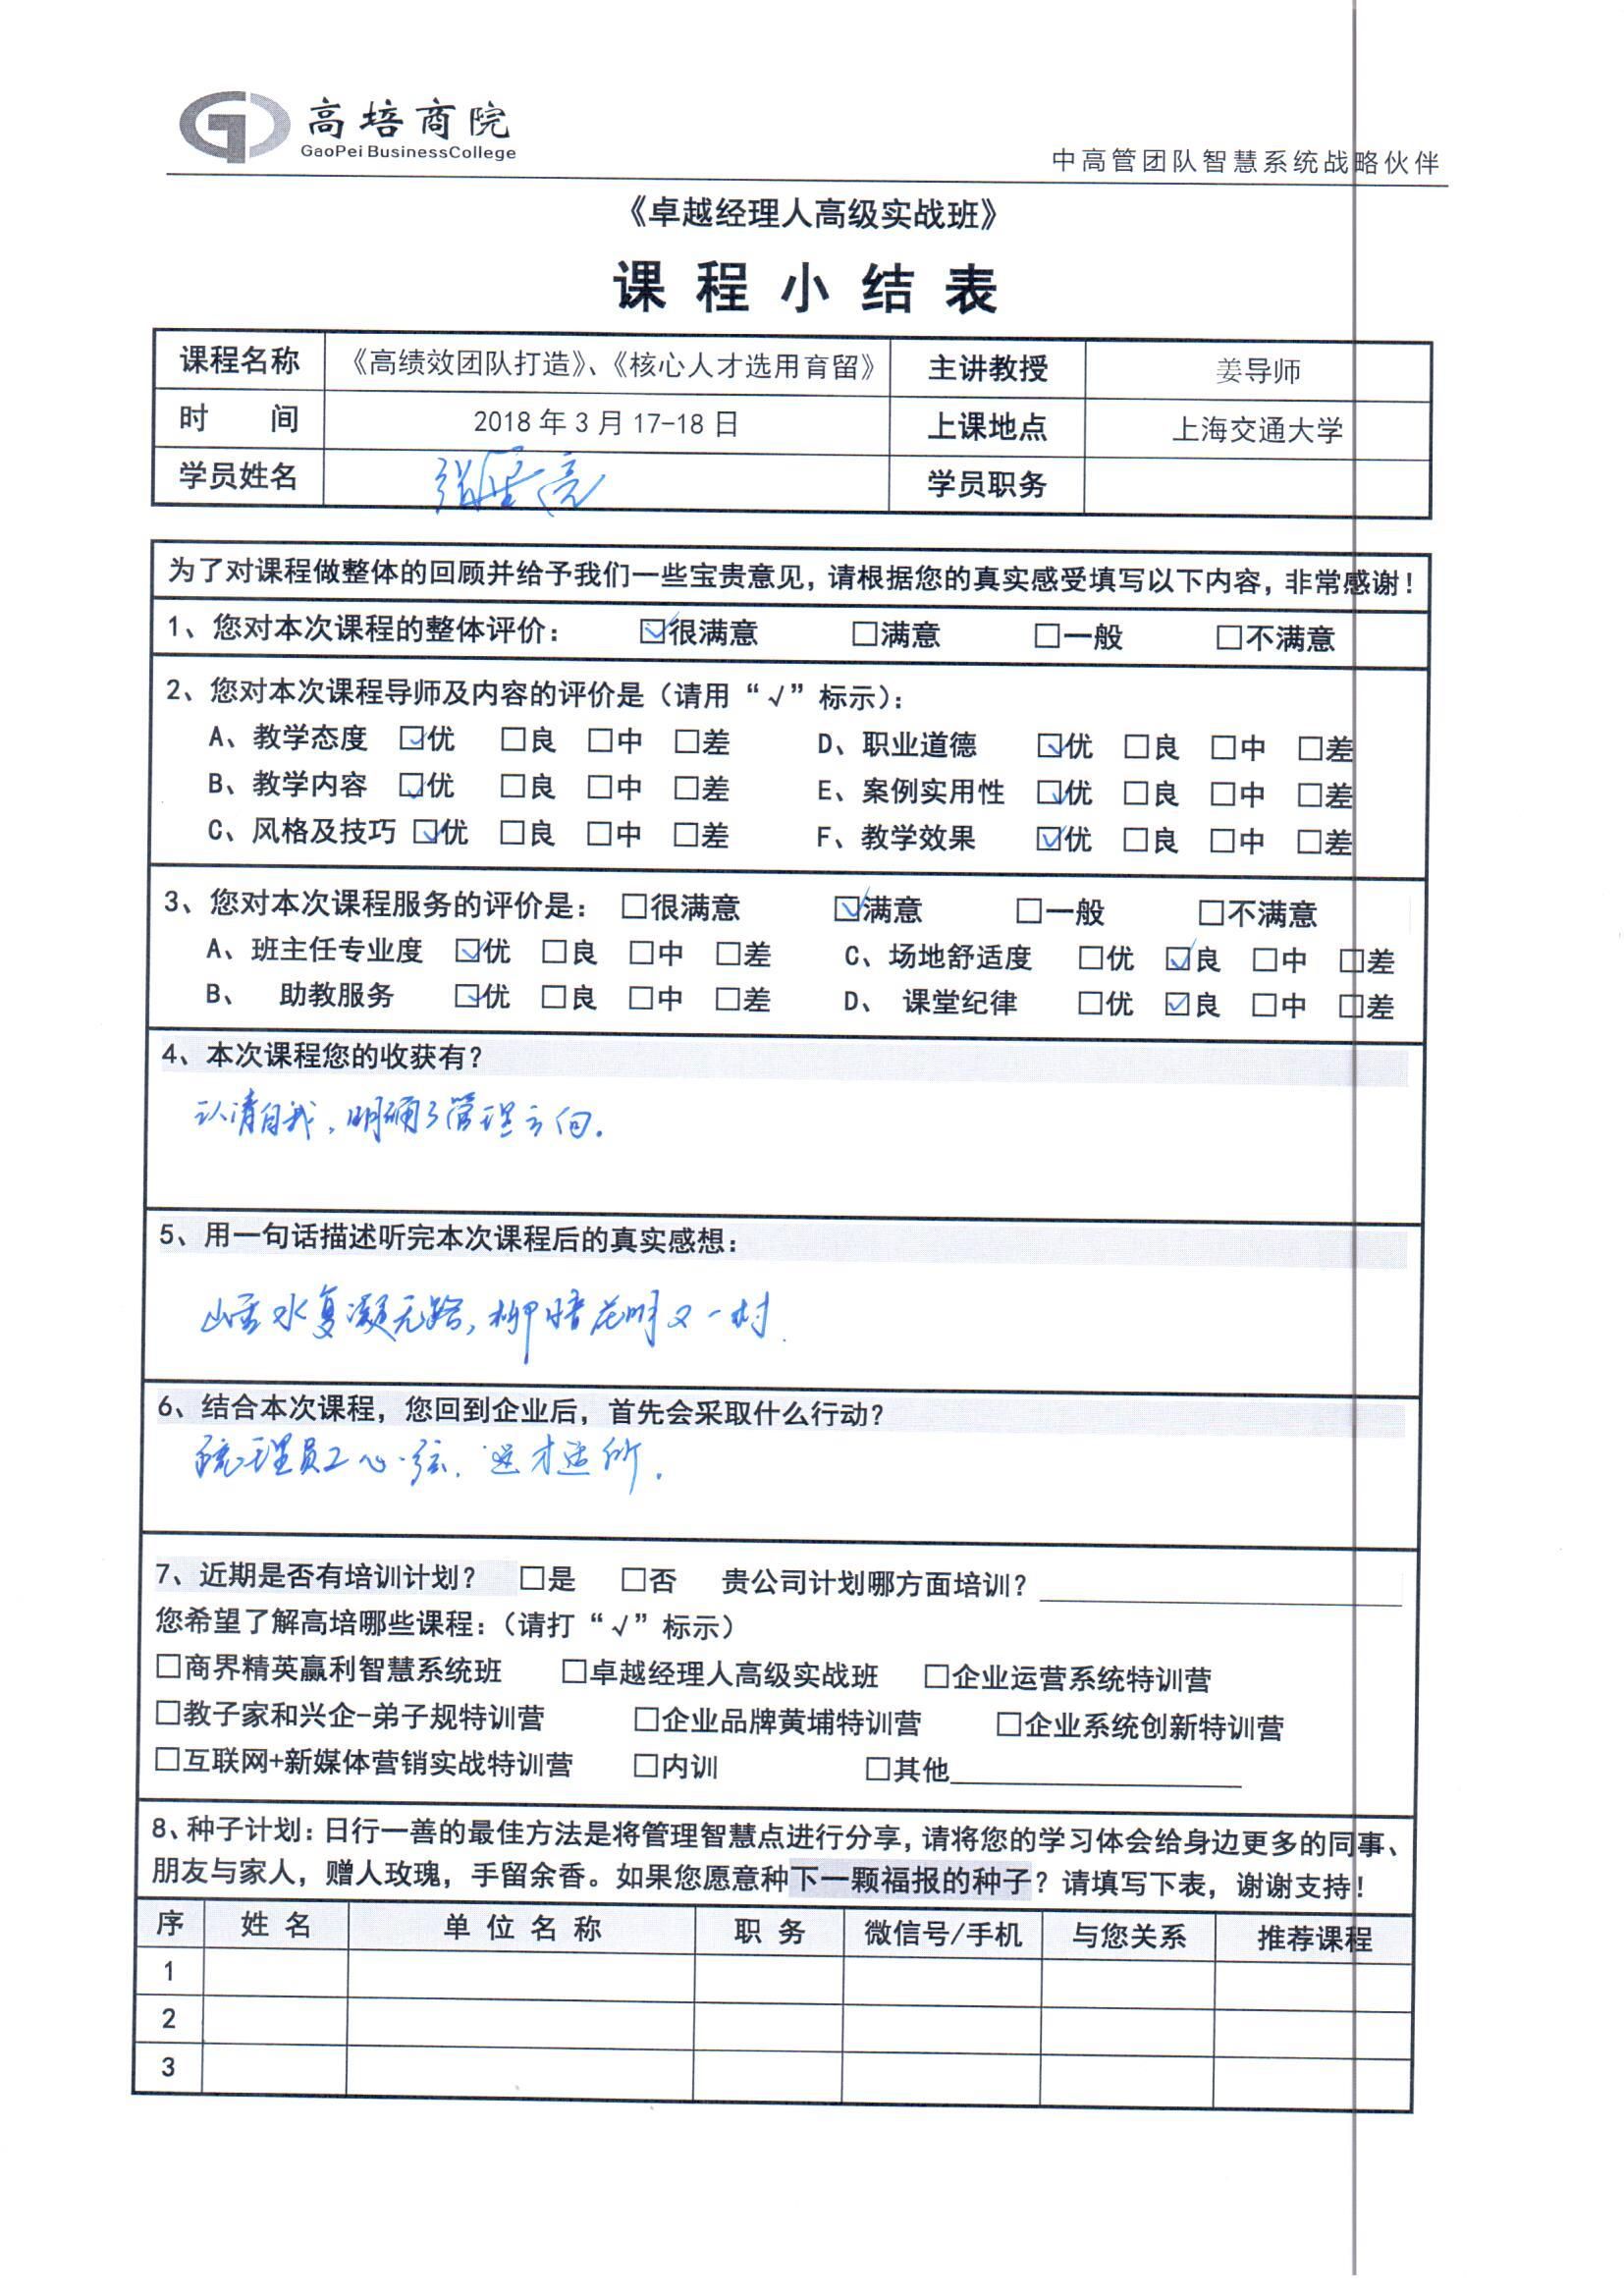 高培商院
GaoPei BusinessCollege
中高管团队智慧系统战略伙伴
《卓越经理人高级实战班》
课程小结表
课程名称 《高绩效团队打造》、《核心人才选用育留》 主讲教授 姜导师
时 间 2018年3月17-18日 上课地点 上海交通大学
学员姓名 学员职务
为了对课程做整体的回顾并给予我们一些宝贵意见，请根据您的真实感受填写以下内容，非常感谢！
1、您对本次课程的整体评价： ☑很满意 □满意 □一般 □不满意
2、您对本次课程导师及内容的评价是（请用“√”标示）：
A、教学态度 ☑优 □良 □中 □差 D、职业道德 ☑优 □良 □中 □差
B、教学内容 ☑优 □良 □中 □差 E、案例实用性 ☑优 □良 □中 □差
C、风格及技巧 ☑优 □良 □中 □差 F、教学效果 ☑优 □良 □中 □差
3、您对本次课程服务的评价是： □很满意 ☑满意 □一般 □不满意
A、班主任专业度 ☑优 □良 □中 □差 C、场地舒适度 □优 ☑良 □中 □差
B、 助教服务 ☑优 □良 □中 □差 D、 课堂纪律 □优 ☑良 □中 □差
4、本次课程您的收获有？
认清自我，明确了管理方向.
5、用一句话描述听完本次课程后的真实感想：
山重水复凝无路，柳暗花明又一村.
6、结合本次课程，您回到企业后，首先会采取什么行动？
梳理员工心弦.
7、近期是否有培训计划？ □是 □否 贵公司计划哪方面培训？
您希望了解高培哪些课程：（请打“√”标示）
□商界精英赢利智慧系统班 □卓越经理人高级实战班 □企业运营系统特训营
□教子家和兴企-弟子规特训营 □企业品牌黄埔特训营 □企业系统创新特训营
□互联网+新媒体营销实战特训营 □内训 □其他
8、种子计划：日行一善的最佳方法是将管理智慧点进行分享，请将您的学习体会给身边更多的同事、
朋友与家人，赠人玫瑰，手留余香。如果您愿意种下一颗福报的种子？请填写下表，谢谢支持！
序 姓名 单位名称 职务 微信号/手机 与您关系 推荐课程
1
2
3